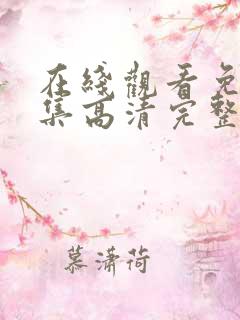 在綫觀看免
集高清完整
慕潇荷